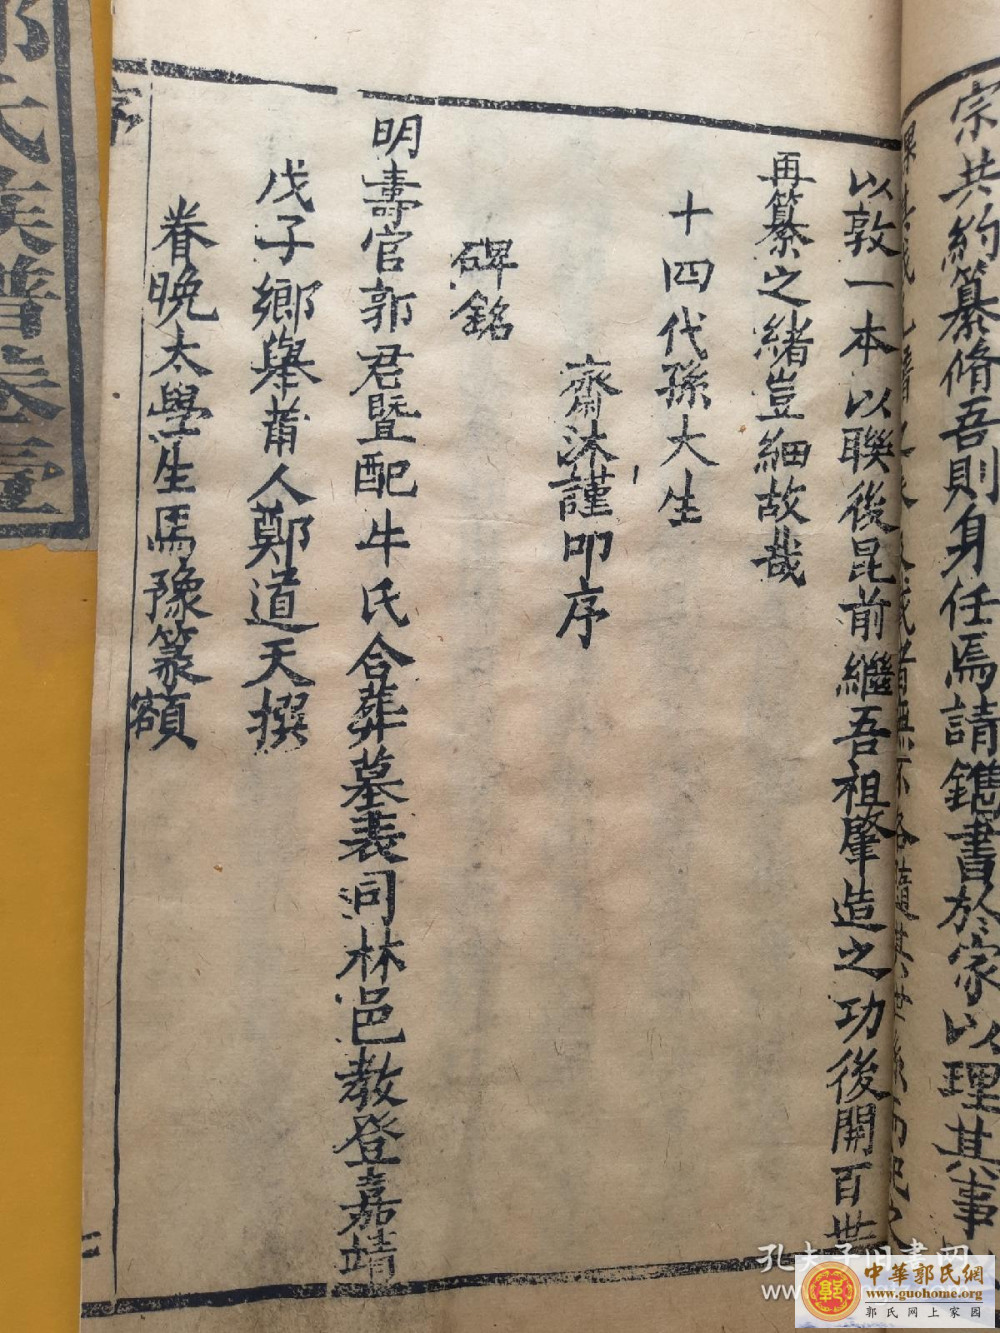 宗共約纂脩吾則身任焉請鐫書於家以理其事
以敦一本以聯後昆前繼吾祖肇造之功後開百世
再纂之緒豈細故哉
十四代孫大生
齋沐謹叩序
碑銘
明壽官郭君暨配牛氏合葬墓表同林邑教登嘉靖
戊子鄉舉莆人鄭道天撰
眷晚太學生馬豫篆額
序
二
氏族譜卷壹
孔夫子旧书网
中華郭氏網
www.guohome.org
郭氏网上家园